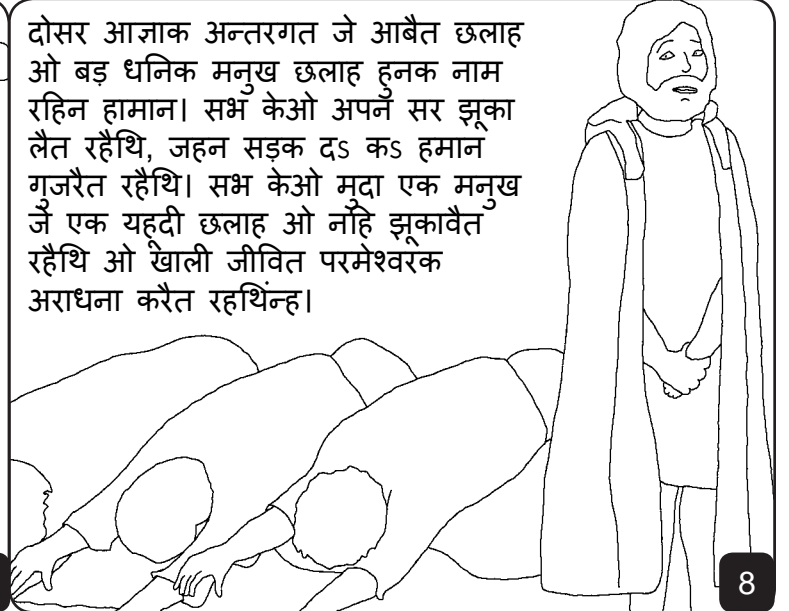 दोसर आज्ञाक अन्तरगत जे आबैत छलाह
ओ बड़ धनिक मनुख छलाह हुनक नाम
रहिन हामान। सभ केओ अपन सर झूका
लैत रहैथि, जहन सड़क दऽ कऽ हमान
गुजरैत रहैथि। सभ केओ मुदा एक मनुख
जे एक यहूदी छलाह ओ नहि झूकावैत
रहैथि ओ खाली जीवित परमेश्वरक
अराधना करैत रहथिंन्ह।
8